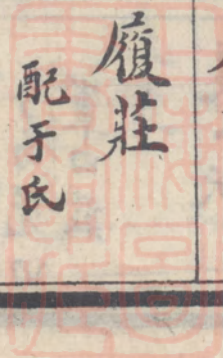 履莊
配于氏